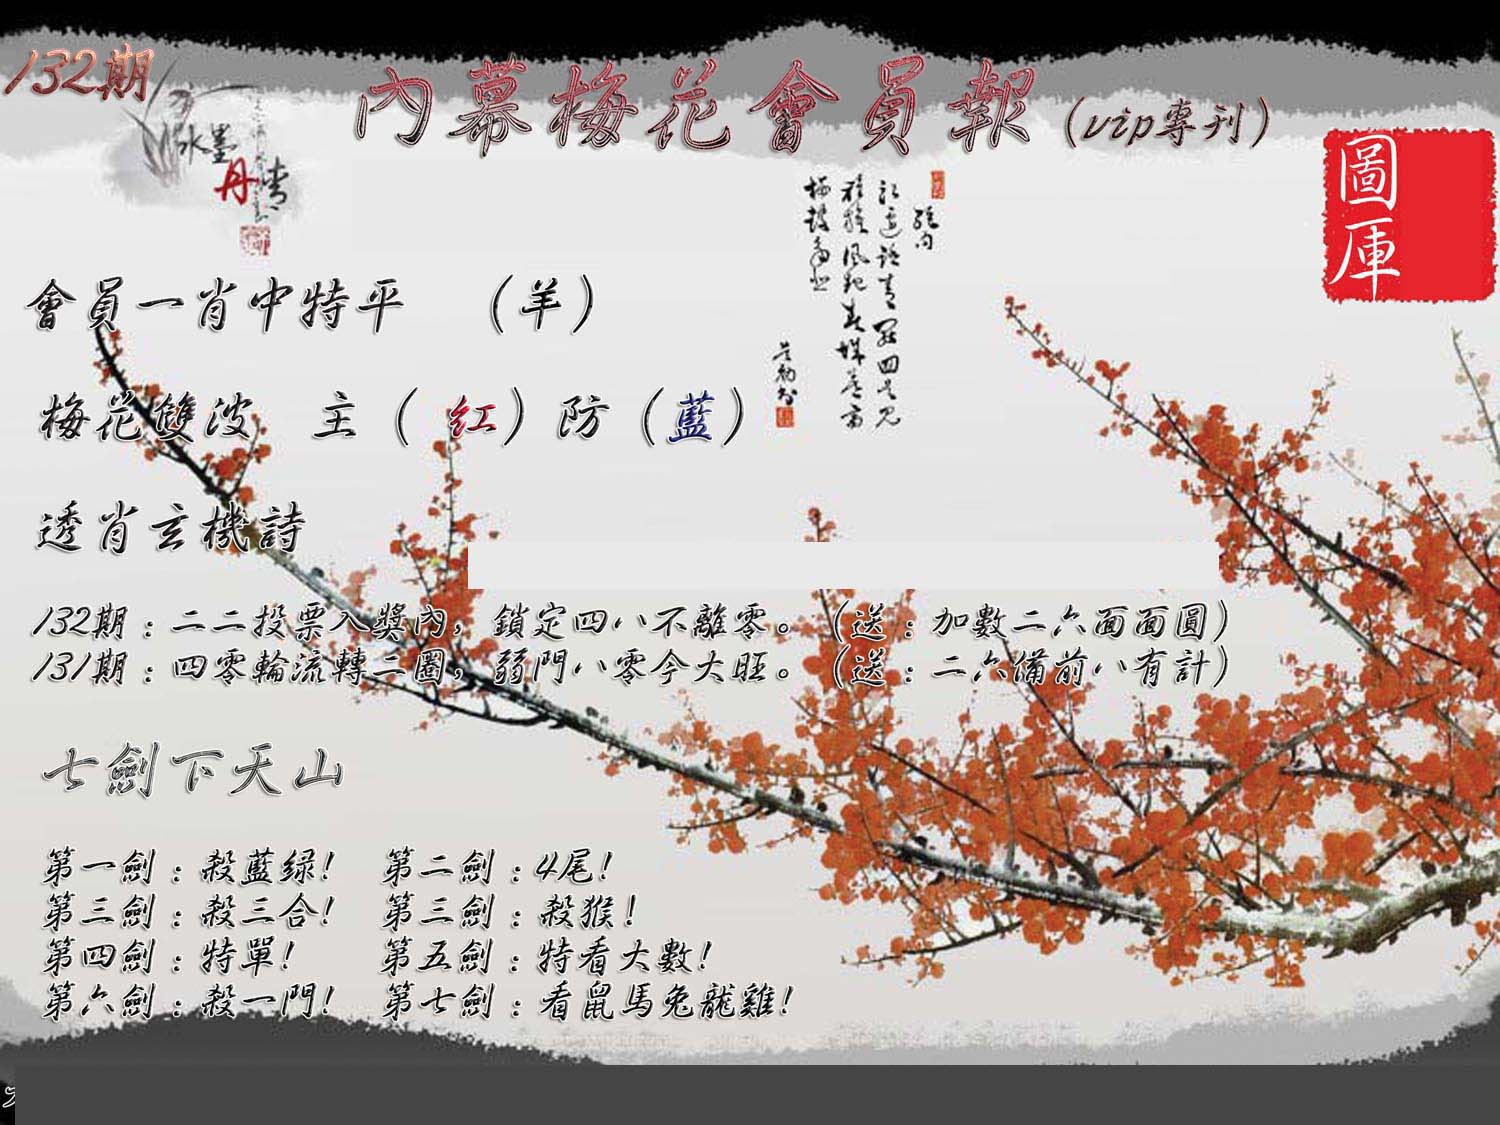 132期
內幕梅花會員報(vip專刊)
水墨
丹青
圖庫
會員一肖中特平 (羊)
梅花雙波 主(紅)防(藍)
透肖玄機詩
132期:二二投票入獎內,鎖定四八不離零。(送:加數二六面面圓)
131期:四零輪流轉二圈,弱門八零今大旺。(送:二六備前八有計)
七劍下天山
第一劍:殺藍绿! 第二劍:4尾!
第三劍:殺三合! 第三劍:殺猴!
第四劍:特單! 第五劍:特看大數!
第六劍:殺一門! 第七劍:看鼠馬兔龍雞!